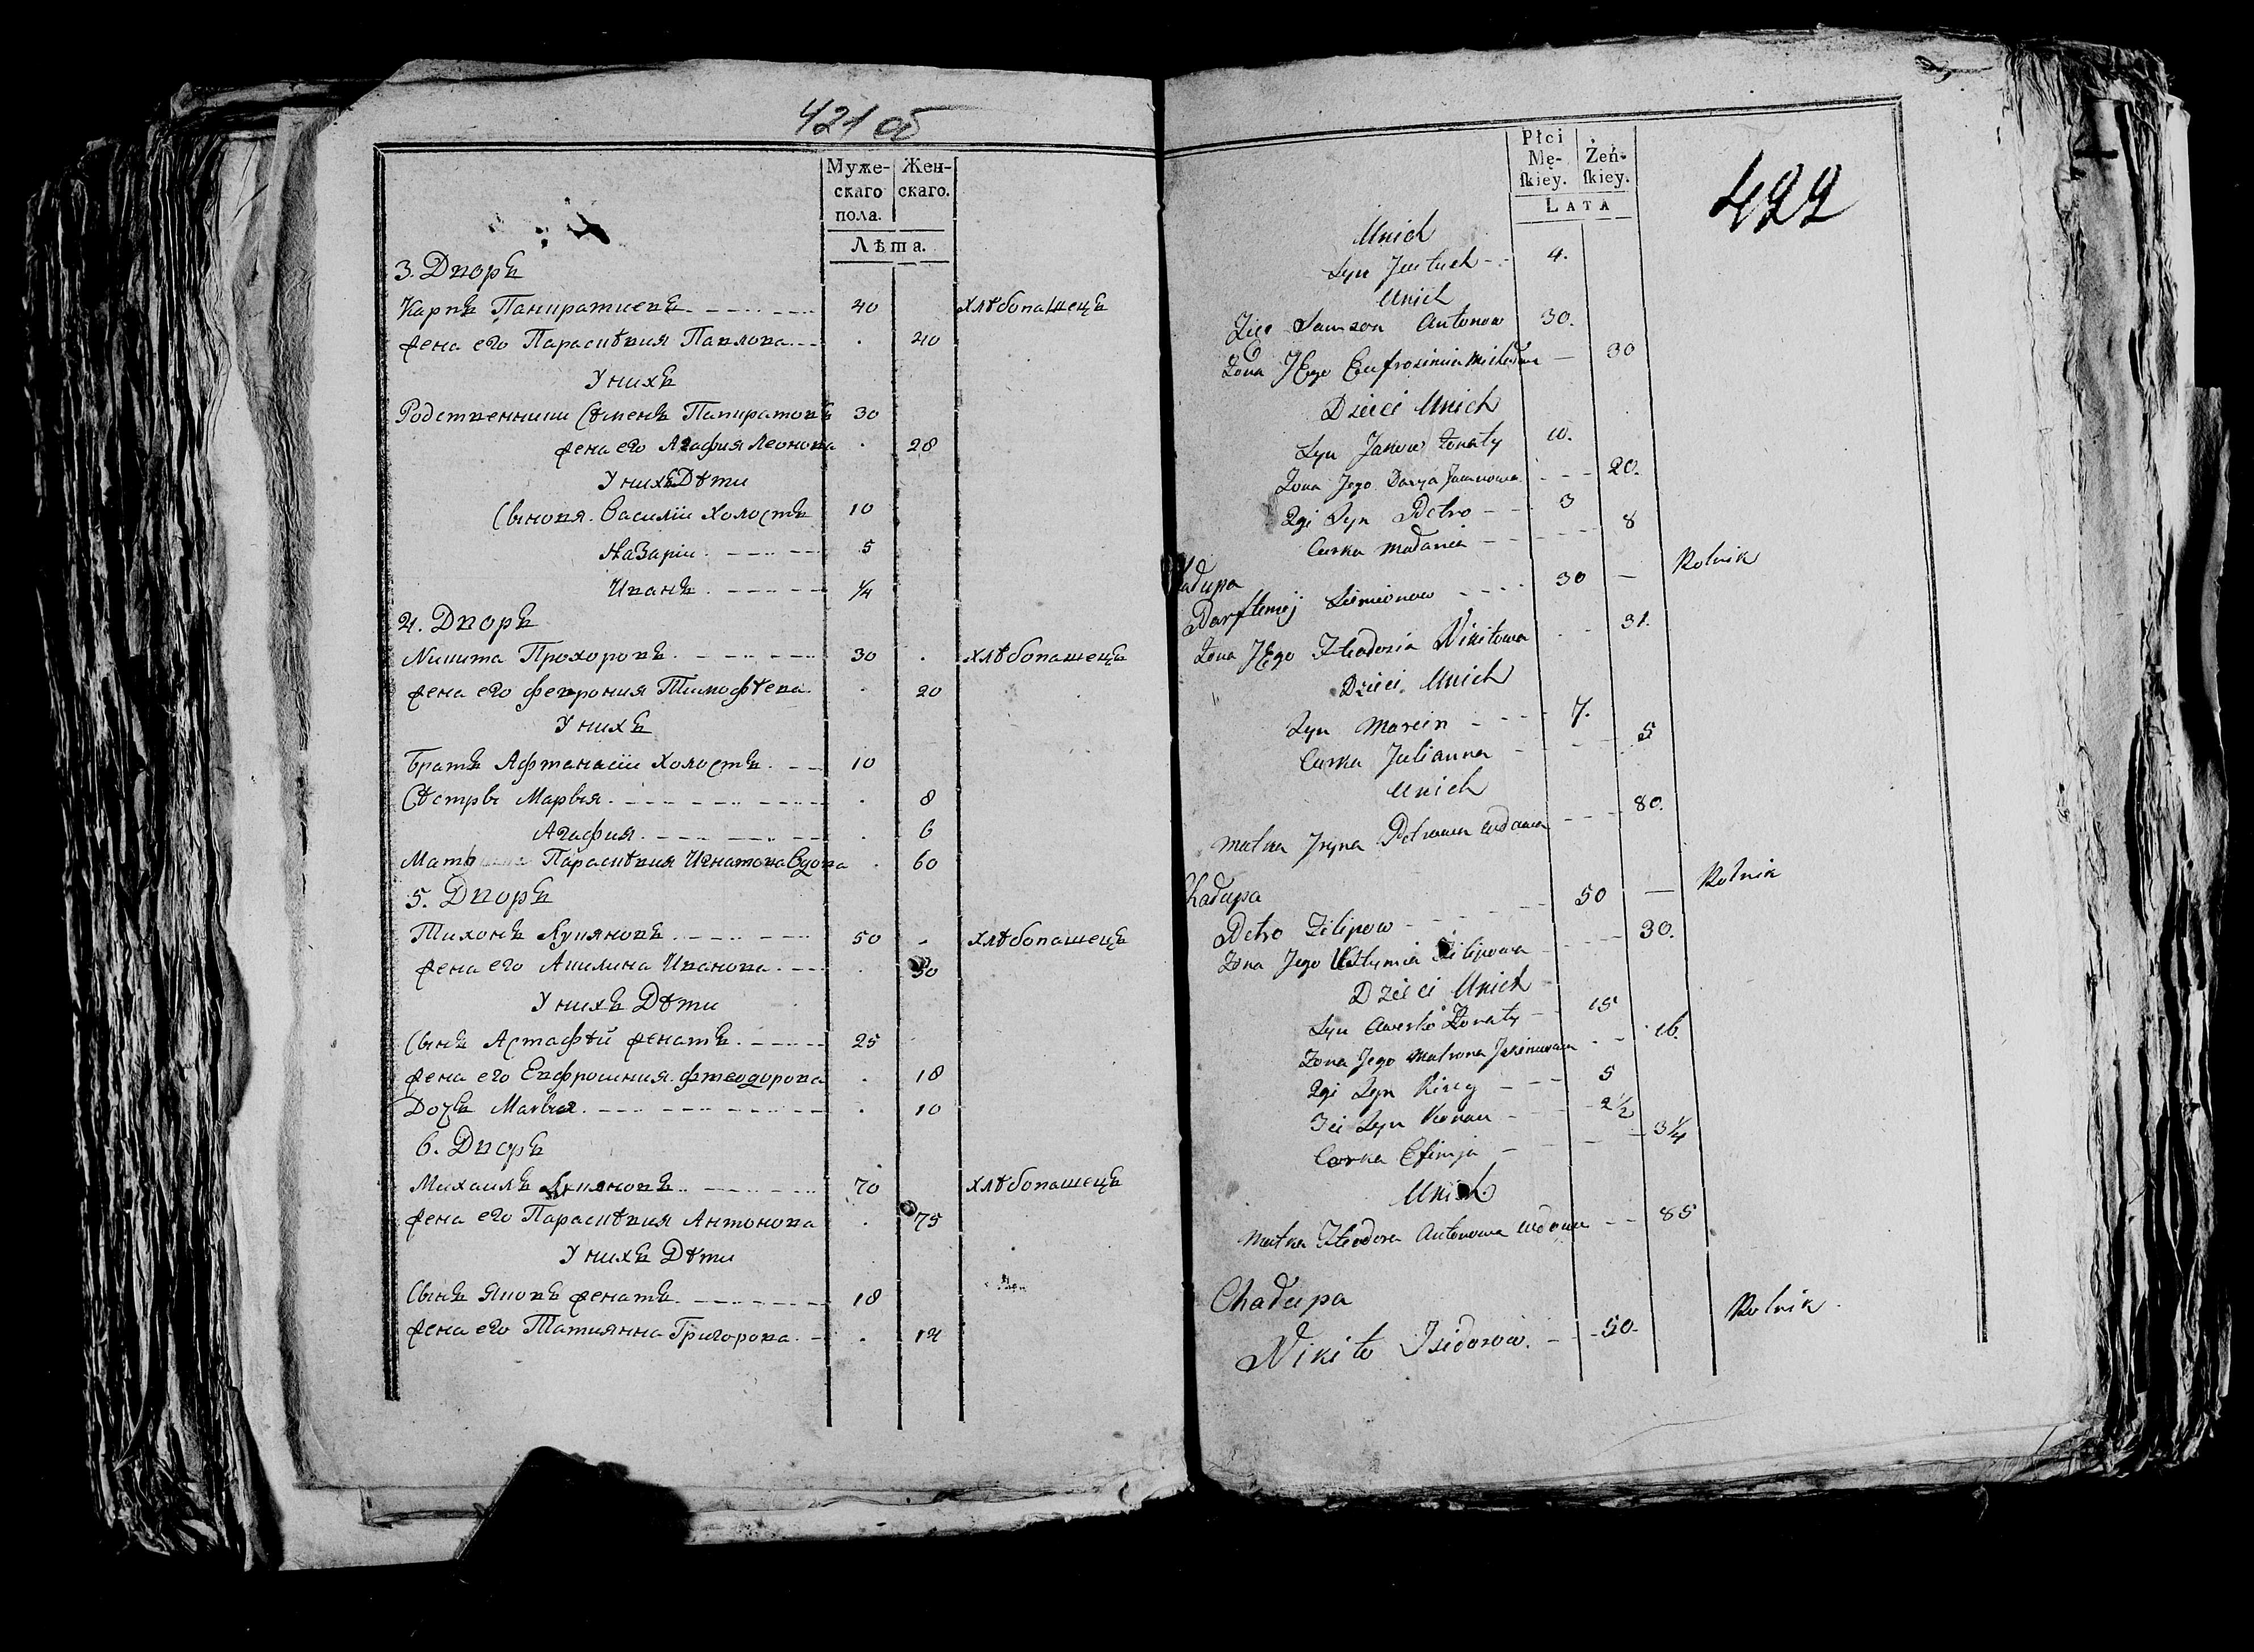 421 об
Муже-
скаго
пола.
Жен-
скаго.
Лѣта.
3. Дворъ
Карпъ Панкратиевъ 40 хлѣбопашецъ
жена его Параскѣвия Павлова 40
У нихъ
Родственники Сѣменъ Панкратовъ 30
жена его Агафия Леонова 28
У нихъ Дѣти
Сыновя. Василіи холостъ 10
Назаріи 5
Иванъ 1/4
4. Дворъ
Никита Прохоровъ 30 хлѣбопашецъ
жена его феврония Тимофѣева 20
У нихъ
Братъ Афтанасіи холостъ 10
Сѣстры Марья 8
Агафия 6
Мать Параскѣвия Игнатова Вдова 60
5. Дворъ
Тихонъ Лукяновъ 50 - хлѣбопашецъ
жена его Акилина Иванова 50
У нихъ Дѣти
Сынъ Астафѣй женатъ 25
жена его Евфросиния фтеодорова 18
Дочь Марья 10
6. Дворъ
Михаилъ 70 хлѣбопашецъ
жена его Параскѣвия Антонова 75
У нихъ Дѣти
Сынъ яковъ женатъ 18
жена его Татиянна Григорова 14
422
Płci
Mę-
ſkiey.
Żeń-
ſkiey.
LATA
Unich
Syn 4.
Unich
Zięc Samson Antonow 30.
Zona JEgo Eufrosinia 30
Dzieci Unich
Syn Jakow Zonaty 10.
Zona Jego Darya 20.
2gi Syn Petro 3
Curka Madania 8
Parftemij Siemionow 30 — Rolnik
Zona JEgo Fteodosia Nikitowa 31.
Dzieci Unich
Syn Marcin 7.
Curka Julianna 5
Unich
Matka Iryna Petrowna wdowa 80.
Chadupa
Petro Filipow 50 — Rolnik
Zona Jego Filipowa 30.
Dzieci Unich
Syn Awerko Zonaty 15
Zona Jego Matrona 16.
2gi Syn Kirey 5
3ci Syn Konan 2 1/2
Corka Efimja 3 1/4
Unich
Matka Fteodora Antonowa wdowa 85
Chadupa
Nikito Isidorow. 50 Rolnik.